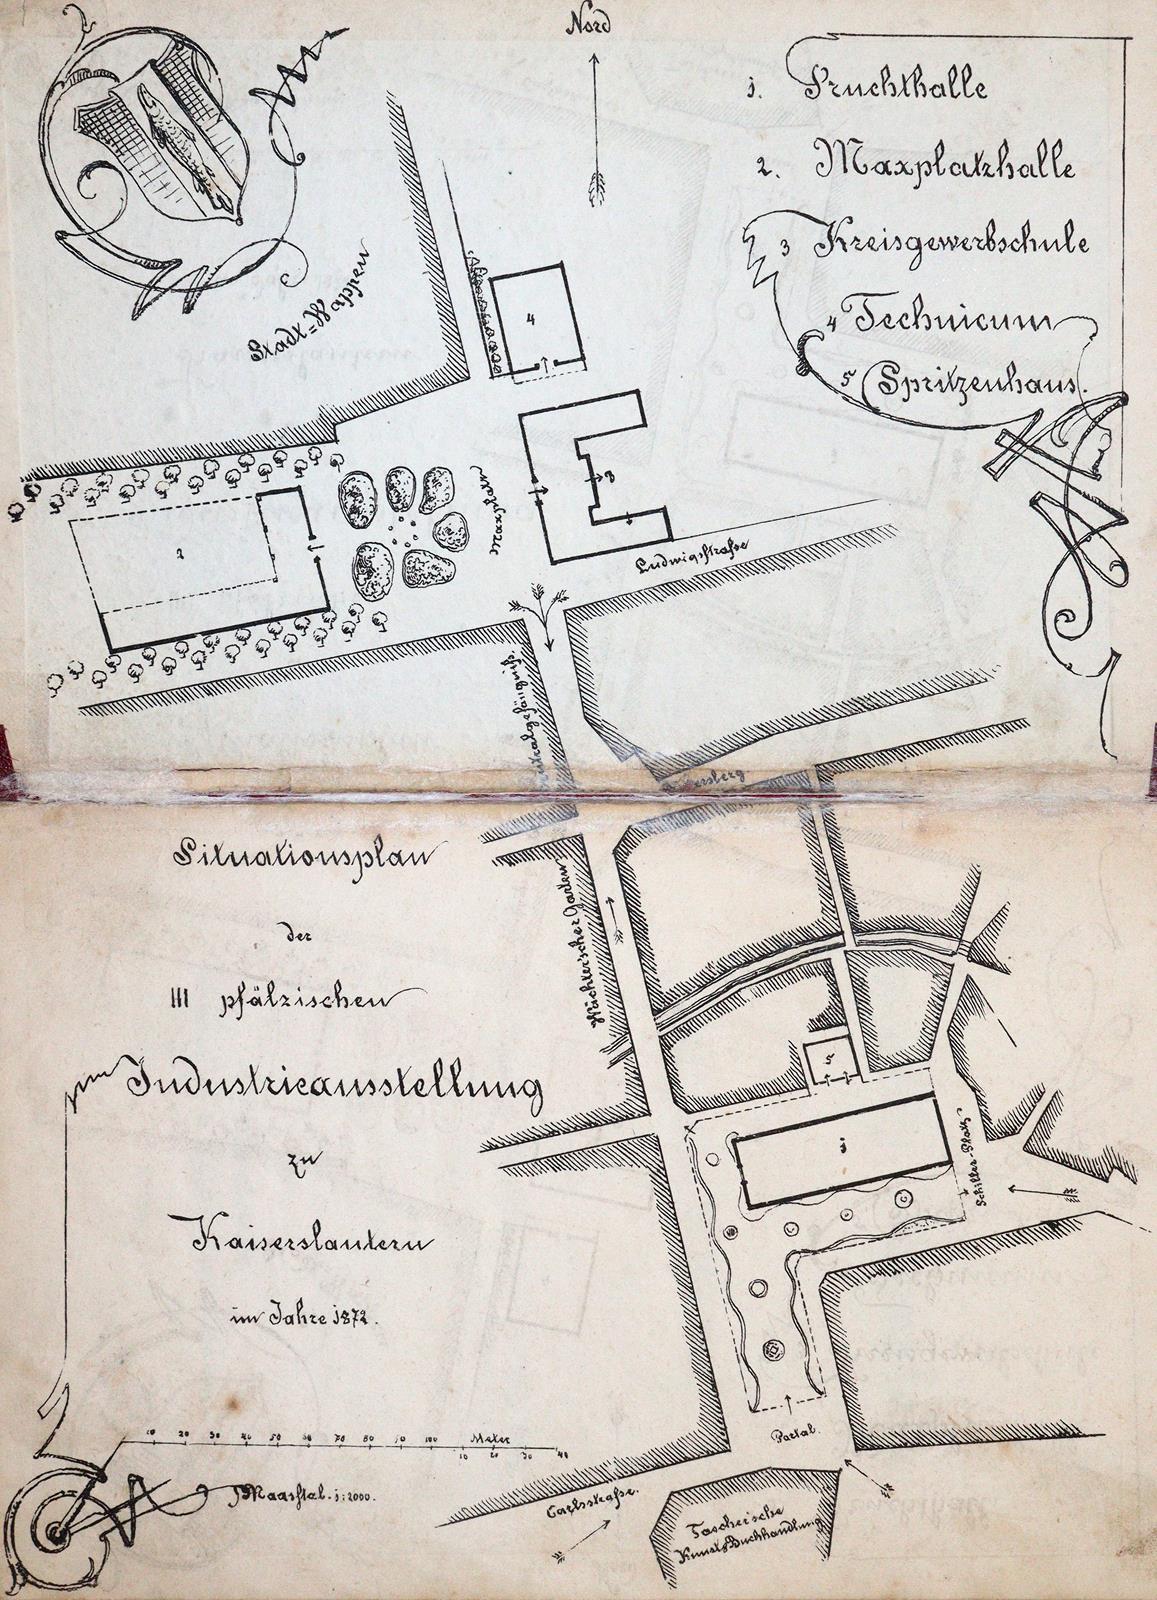 Nord
1. Fruchthalle
2. Maxplatzhalle
3 Kreisgewerbschule
4 Technicum
5 Spritzenhaus.
Stadt=Wappen
4
3
2
Maxplatz
Ludwigsstrasse
Situationsplan
der
III pfälzischen
Industrieausstellung
zu
Kaiserslautern
im Jahre 1872.
Garten
5
1
Schiller-Platz
Portal.
10 20 30 40 50 60 70 80 90 100 Meter
10 20 30 40
Maasstab. 1:2000.
Carlsstrasse.
Tascher'sche
Kunst&Buchhandlung